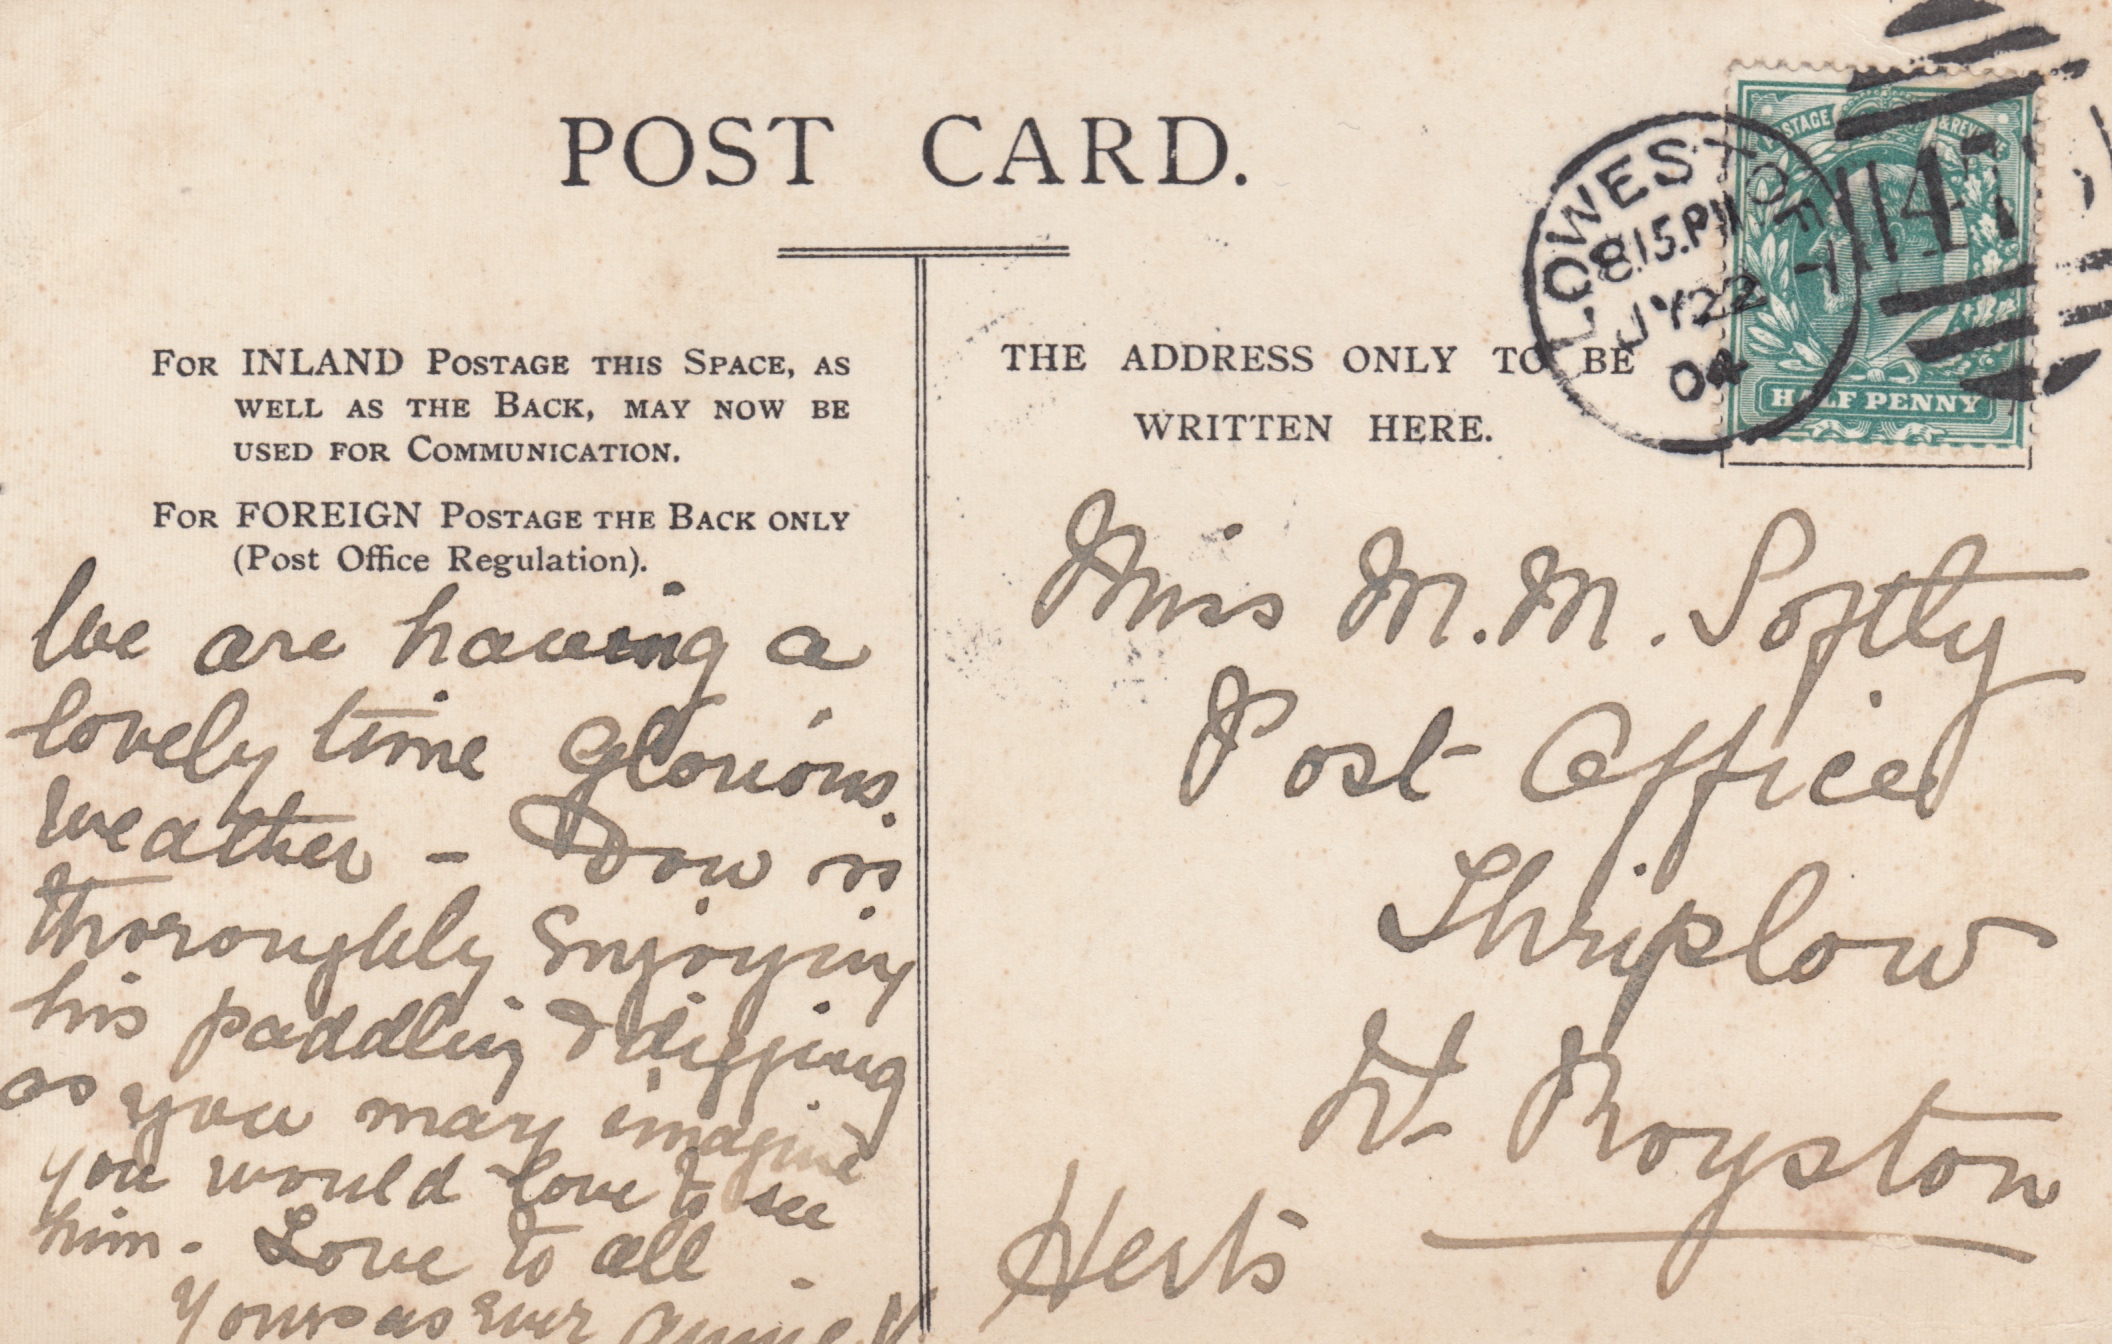 POST CARD.
FOR INLAND POSTAGE THIS SPACE, AS
WELL AS THE BACK, MAY NOW BE
USED FOR COMMUNICATION.
FOR FOREIGN POSTAGE THE BACK ONLY
(Post Office Regulation).
THE ADDRESS ONLY TO BE
WRITTEN HERE.
LOWESTOFT
8.15.PM
JY 22
04
147
POSTAGE & REVE
HALF PENNY
We are having a
lovely time Glorious
weather - Dow is
thoroughly Enjoying
his paddling & digging
as you may imagine
you would love to see
him - Love to all
Yours as ever Annie
Miss M. M. Softly
Post Office
Thriplow
Nr Royston
Herts